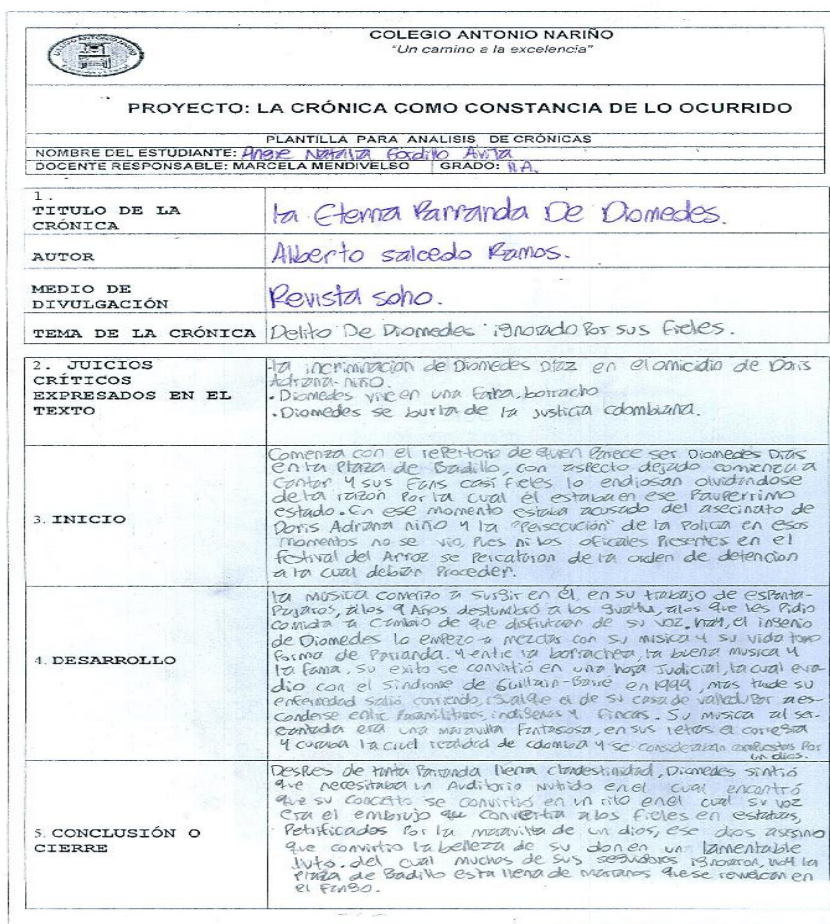 COLEGIO ANTONIO NARIÑO
"Un camino a la excelencia"
PROYECTO: LA CRÓNICA COMO CONSTANCIA DE LO OCURRIDO
PLANTILLA PARA ANALISIS DE CRÓNICAS
NOMBRE DEL ESTUDIANTE: Angie Natalia Gordillo Avila
DOCENTE RESPONSABLE: MARCELA MENDIVELSO GRADO: 11A.
1.
TITULO DE LA
CRÓNICA
la Eterna Parranda De Diomedes.
AUTOR
Alberto salcedo Ramos.
MEDIO DE
DIVULGACIÓN
Revista soho.
TEMA DE LA CRÓNICA
Delito De Diomedes ignorado Por sus fieles.
2. JUICIOS
CRÍTICOS
EXPRESADOS EN EL
TEXTO
-la incriminacion de Diomedes Diaz en el omicidio de Doris
Adriana niño.
• Diomedes vive en una farra, borracho
• Diomedes se burla de la justicia colombiana.
3. INICIO
Comienza con el repertorio de quien Parece ser Diomedes Dias
en la Plaza de Badillo, con aspecto dejado comienza a
Cantar y sus Fans casi fieles lo endiosan olvidandose
de la razon Por la cual él estaba en ese Pauperrimo
estado. En ese momento estaba acusado del asecinato de
Doris Adriana niño y la "Persecución" de la Policia en esos
momentos no se vio, Pues ni los oficales Presentes en el
festival del Arroz se Percataron de la orden de detencion
a la cual debian Proceder.
4. DESARROLLO
la musica comenzo a surgir en él, en su trabajo de espanta-
Pajaros, a los 9 Años deslumbró a los , a los que les Pidio
comida a Cambio de que disfrutaran de su voz. , el ingenio
de Diomedes lo empezo a mezclar con su musica y su vida tomo
forma de Parranda. y entre la borrachera, la buena musica y
la fama. Su exito se convatió en una hoja Judicial, la cual eva
dio con el Sindrome de Guillain-Barré en 1999, mas tarde su
enfermedad salió corriendo, igual que el de su casa de valledupar a es
conderse entre Paramilitares, indigenas y fincas. Su musica al ser
cantada era una maravilla fantasiosa, en sus el corregia
y curaba la cruel realidad de colombia y se consideraban Por
un dios.
5. CONCLUSIÓN O
CIERRE
Despues de tanta Parranda llena clandestinidad, Diomedes sintió
que necesitaba un Auditorio nutrido en el cual encontró
que su Concierto se convirtió en un rito en el cual su voz
era el embrujo que convertia a los fieles en estatuas,
Petrificados Por la maravilla de un dios, ese dios asesino
que convirtio la belleza de su don en un lamentable
luto. del cual muchos de sus seguidores ignoraron, la
Plaza de Badillo esta llena de marranos que se revuelcan en
el fango.